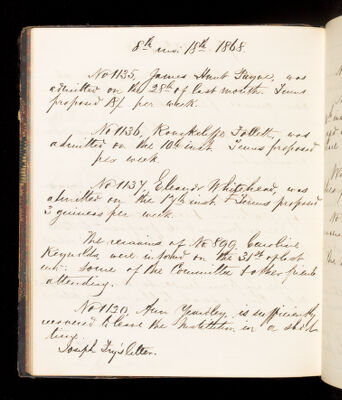 8th mo: 18th 1868
No 1135, James Hunt Payne, was
admitted on the 28th of last month. Terms
proposed 10/- per week.
No 1136, Follett, was
admitted on the 10th inst. Terms proposed
per week
No 1137, Eleanor Whitehead, was
admitted on the 17th inst. Terms proposed
2 guineas per week.
The remains of No 890, Caroline
Reynolds were interred on the 31st of last
mo: Some of the Committee & other friends
attending.
No 1130, Ann Yeardley, is sufficiently
recovered to leave the Institution in a short
time.
Joseph Fry's letter.